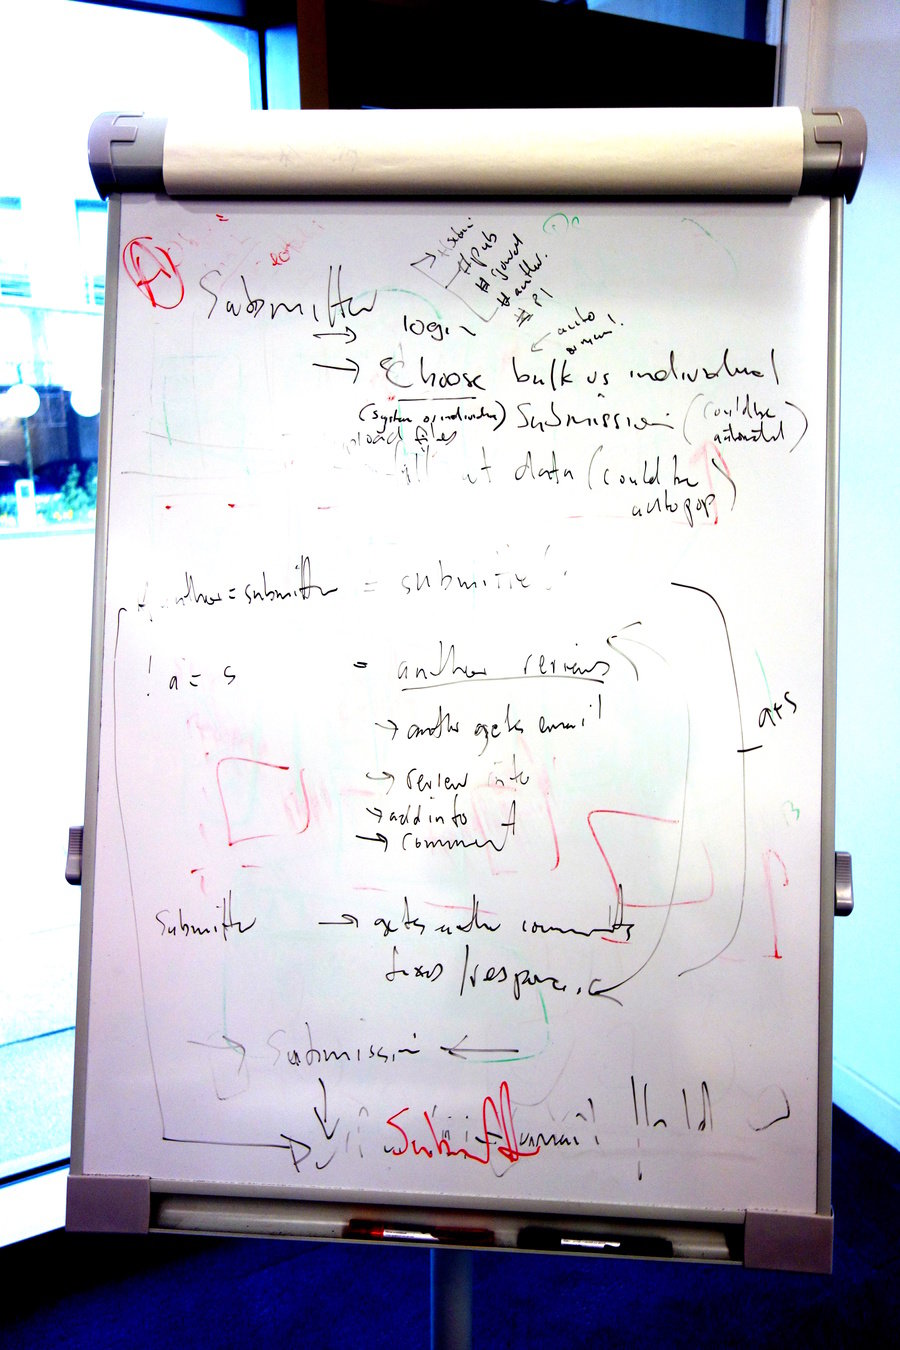 A
Submitter
# pub
# journal
# author.
# PI
→ login
auto
→ Choose bulk vs individual
(system or individual) Submission (could be automated)
upload files
fill out data (could be autopop)
If author = submitter = submitted
! a = s = author reviews
→ author gets email
a+s
→ review info
→ add info
→ comment
Submitter → gets author comments
fixes / response
→ Submission ←
Submitt
email